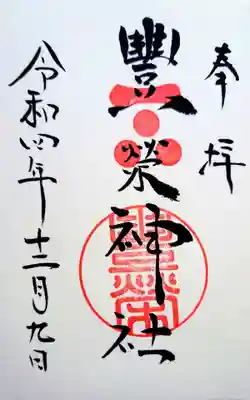 奉拝
豐榮神社
令和四年十二月九日